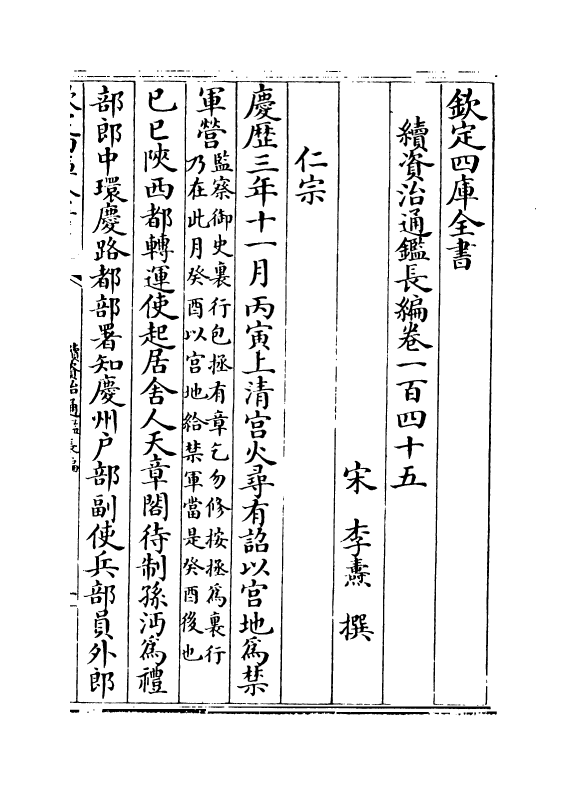 欽定四庫全書
續資治通鑑長編卷一百四十五
宋 李燾 撰
仁宗
慶歴三年十一月丙寅上清宫火尋有詔以宫地為禁
軍營監察御史裏行包拯有章乞勿修按拯為裏行
乃在此月癸酉以宫地給禁軍當是癸酉後也
已巳陜西都轉運使起居舍人天章閣待制孫沔為禮
部郎中環慶路都部署知慶州户部副使兵部員外郎
續資治通鑑長編